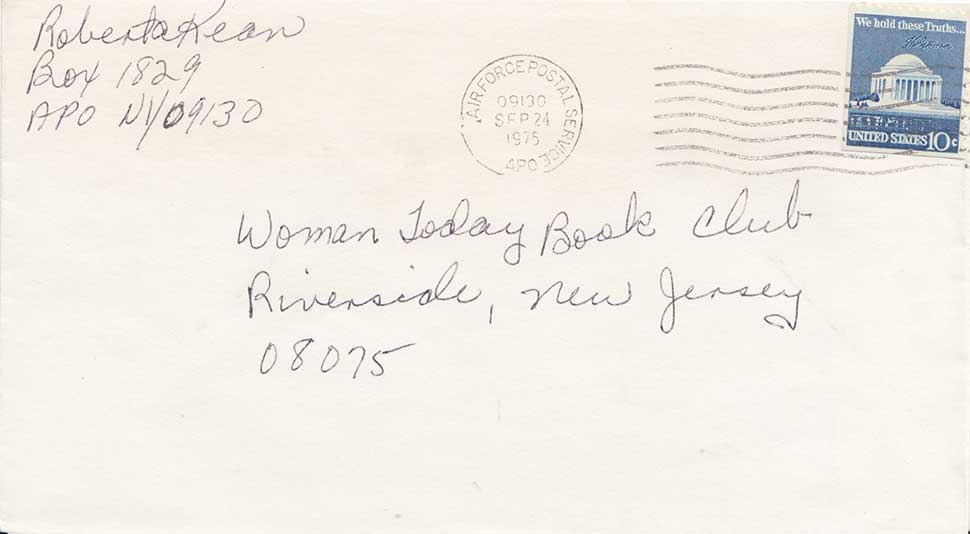 Roberta Kean
Box 1829
APO NY 09130
AIR FORCE POSTAL SERVICE
09130
SEP 24
1975
APO
We hold these Truths...
UNITED STATES 10c
Woman Today Book Club
Riverside, New Jersey
08075